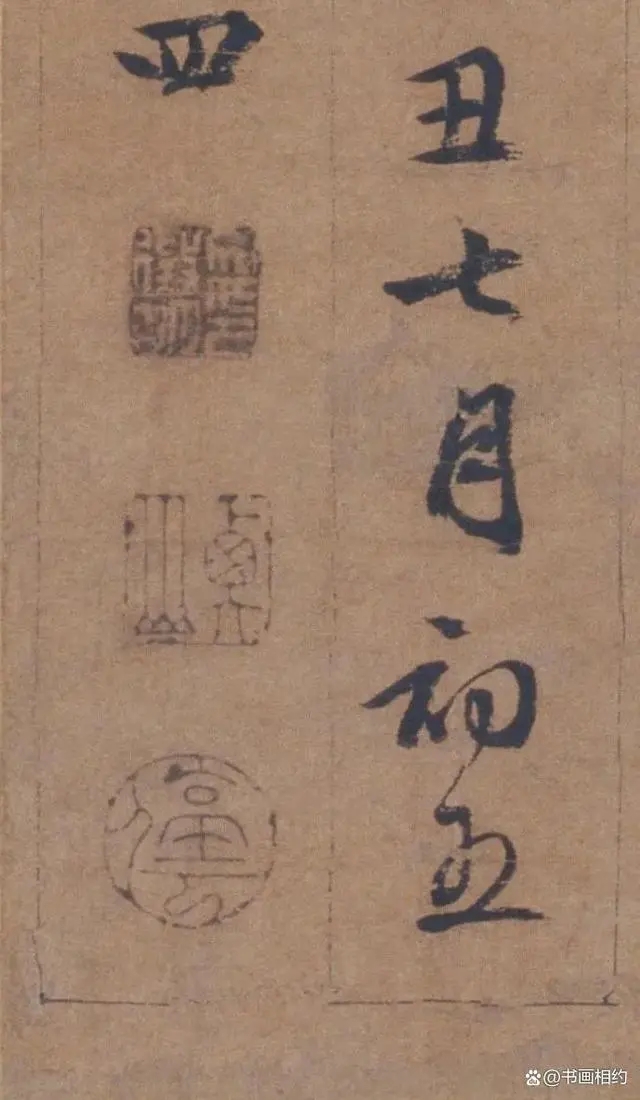 丑七月初五
四
停云
@书画相约